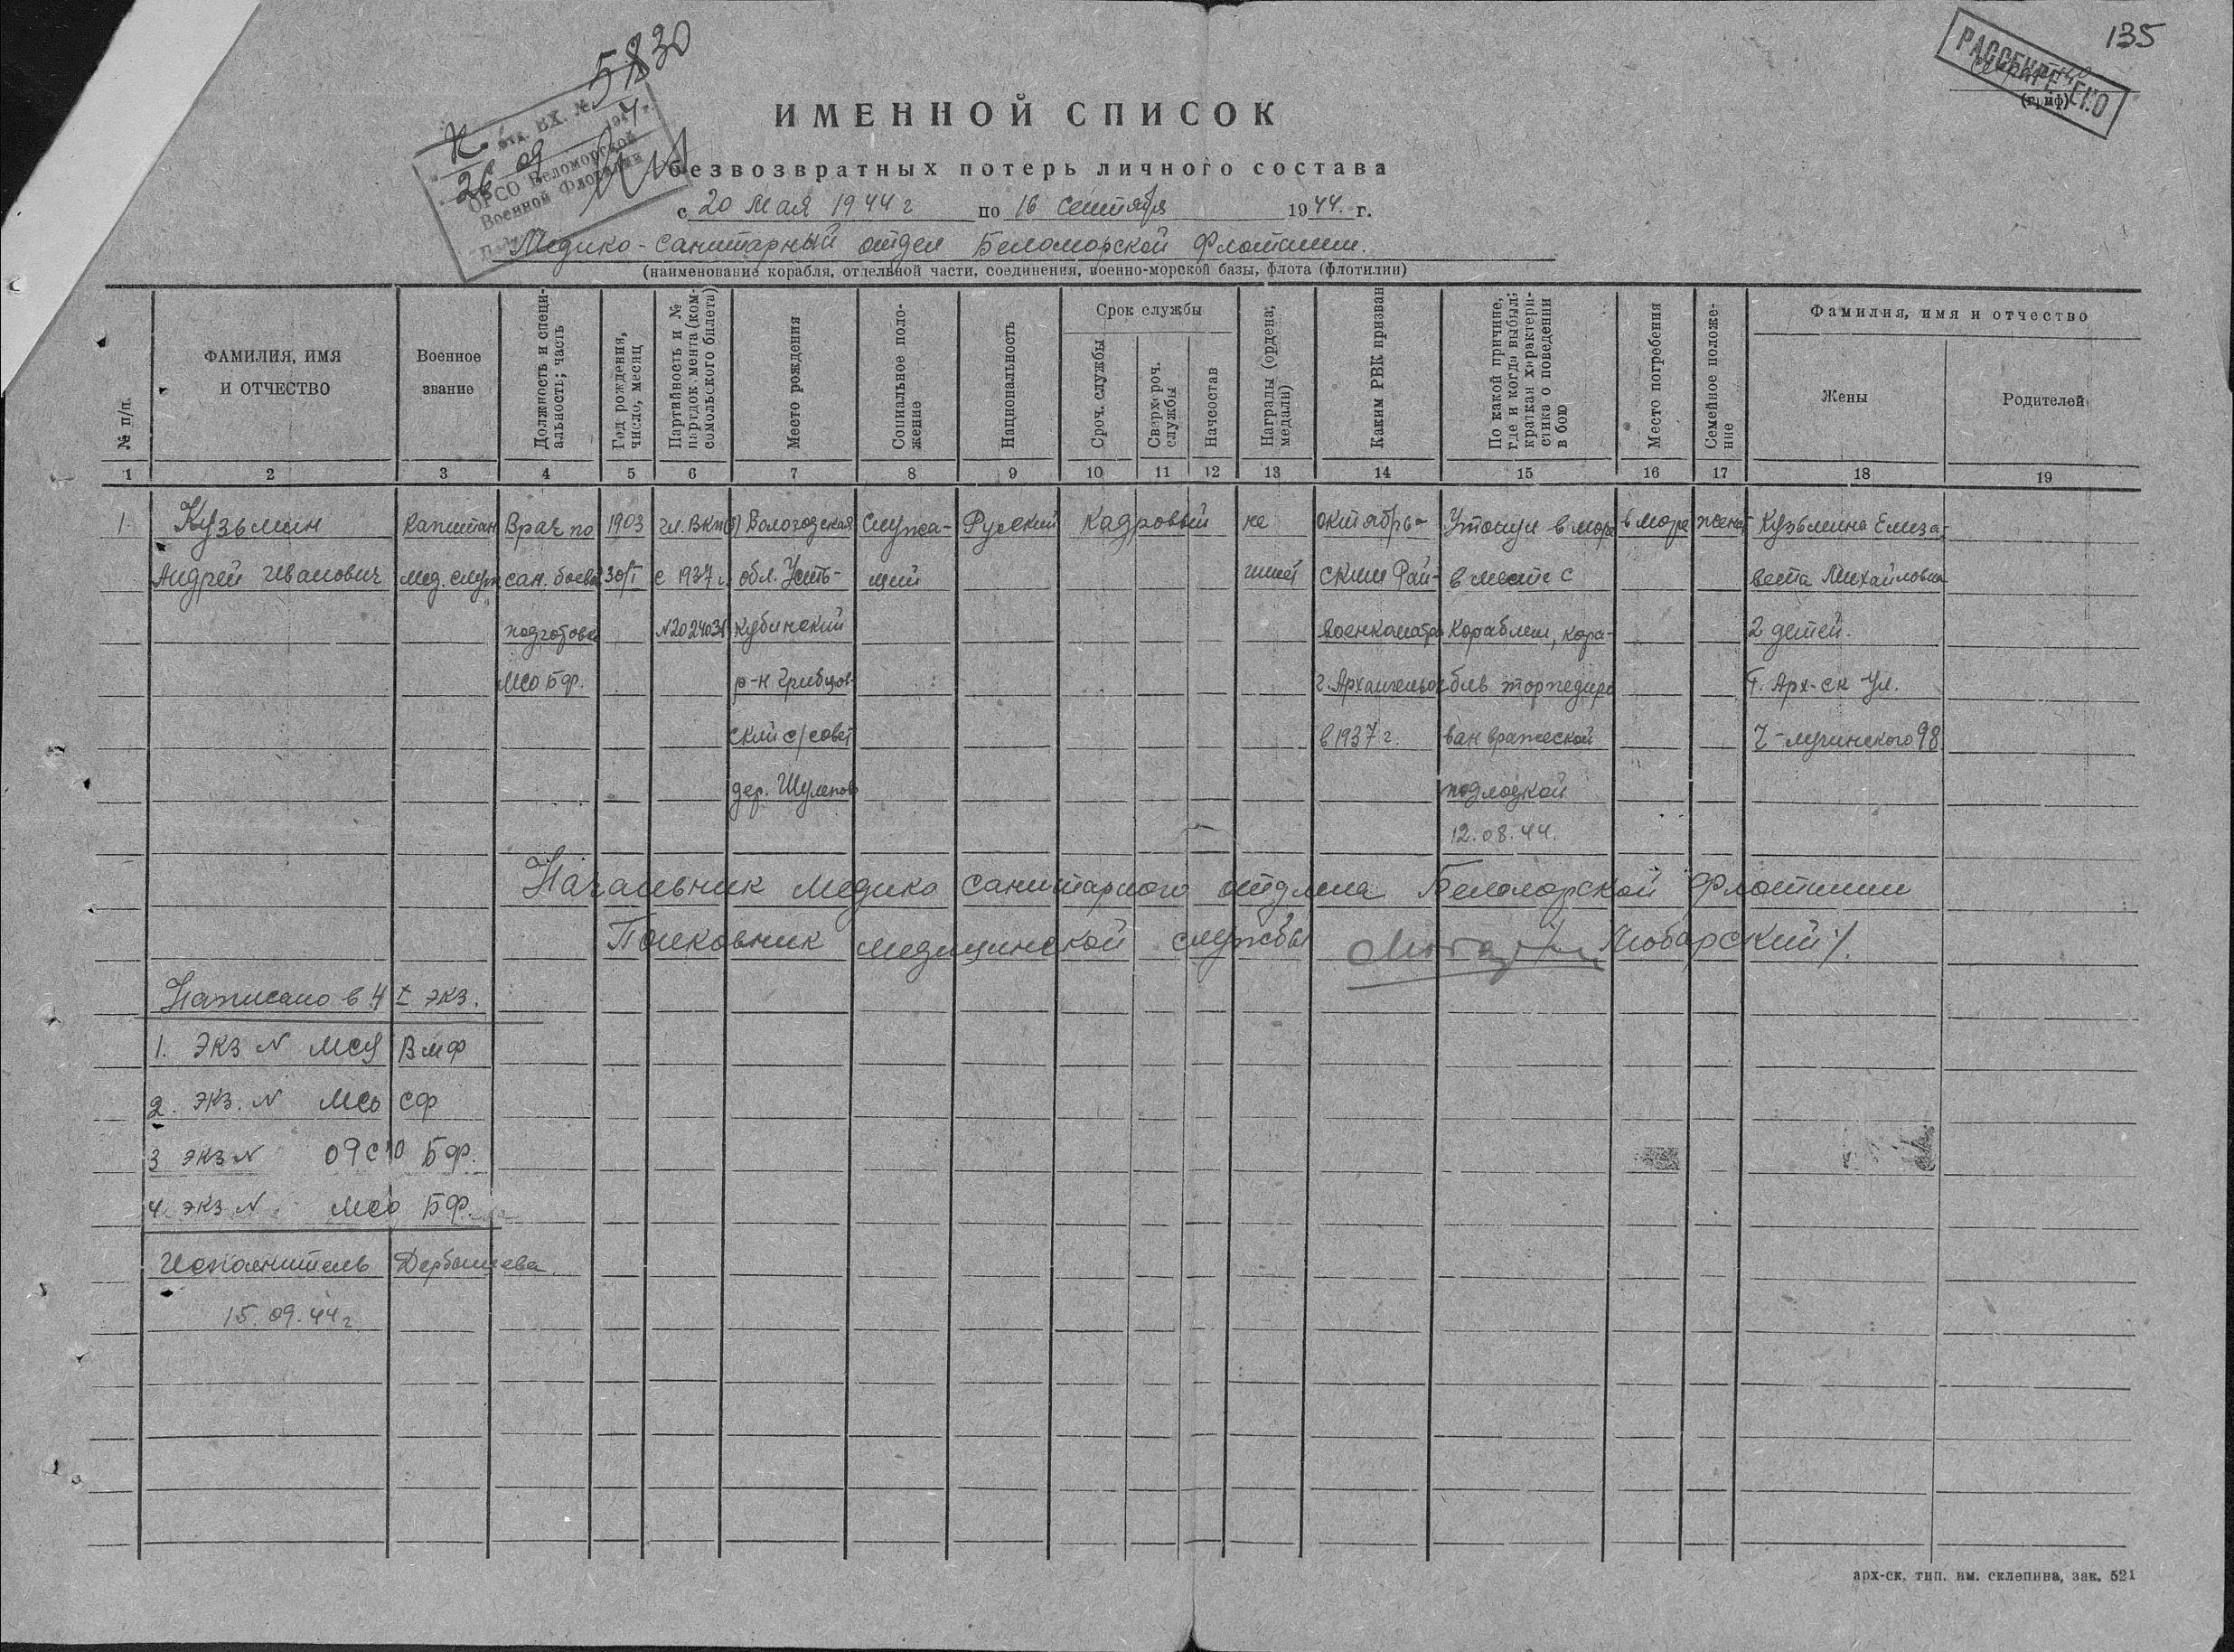 135
РАССЕКРЕЧЕНО
(гриф)
5830
вх. №
26 09 1944 г.
ОРСО Беломорской
Военной Флотилии
ИМЕННОЙ СПИСОК
безвозвратных потерь личного состава
с 20 мая 1944 г по 16 сентября 1944 г.
Медико-санитарный отдел Беломорской Флотилии.
(наименование корабля, отдельной части, соединения, военно-морской базы, флота (флотилии)
№ п/п.
ФАМИЛИЯ, ИМЯ
И ОТЧЕСТВО
Военное
звание
Должность и специ-
альность; часть
Год рождения,
число, месяц
Партийность и №
партдокумента (ком-
сомольского билета)
Место рождения
Социальное поло-
жение
Национальность
Срок службы
Сроч. службы
Сверхсроч.
службы
Начсостав
Награды (ордена,
медали)
Каким РВК призван
По какой причине,
где и когда выбыл;
краткая характери-
стика о поведении
в бою
Место погребения
Семейное положе-
ние
Фамилия, имя и отчество
Жены
Родителей
1 2 3 4 5 6 7 8 9 10 11 12 13 14 15 16 17 18 19
1.
Кузьмин
Андрей Иванович
Капитан
мед. служ
Врач по
сан. боевой
подготовке
МСО БФ.
1903
30/I
чл. ВКП(б)
с 1937 г.
Вологодская
обл. Усть-
Кубинский
р-н
ский с/совет
Служа-
щий
Русский
Кадровый
не
имеет
Октябрь-
ским Рай-
военкоматом
г. Архангельск
в 1937 г.
Утонул в море
вместе с
кораблем, кора-
бль торпедиро
ван вражеской
подлодкой
12.08.44.
в море
женат
Кузьмина Елиза-
вета Михайловна
2 детей.
г. Арх-ск ул.
Ч-лучинского 98
Начальник Медико санитарного отдела Беломорской Флотилии
Полковник медицинской службы Любарский/.
Написано в 4х экз.
1. Экз N МСУ ВМФ
2. экз. N МСО СФ
3 экз N ОРСО БФ.
4. экз N МСО БФ.
Исполнитель Дербышева
15.09.44 г
арх-ск. тип. им. склепина, зак. 521